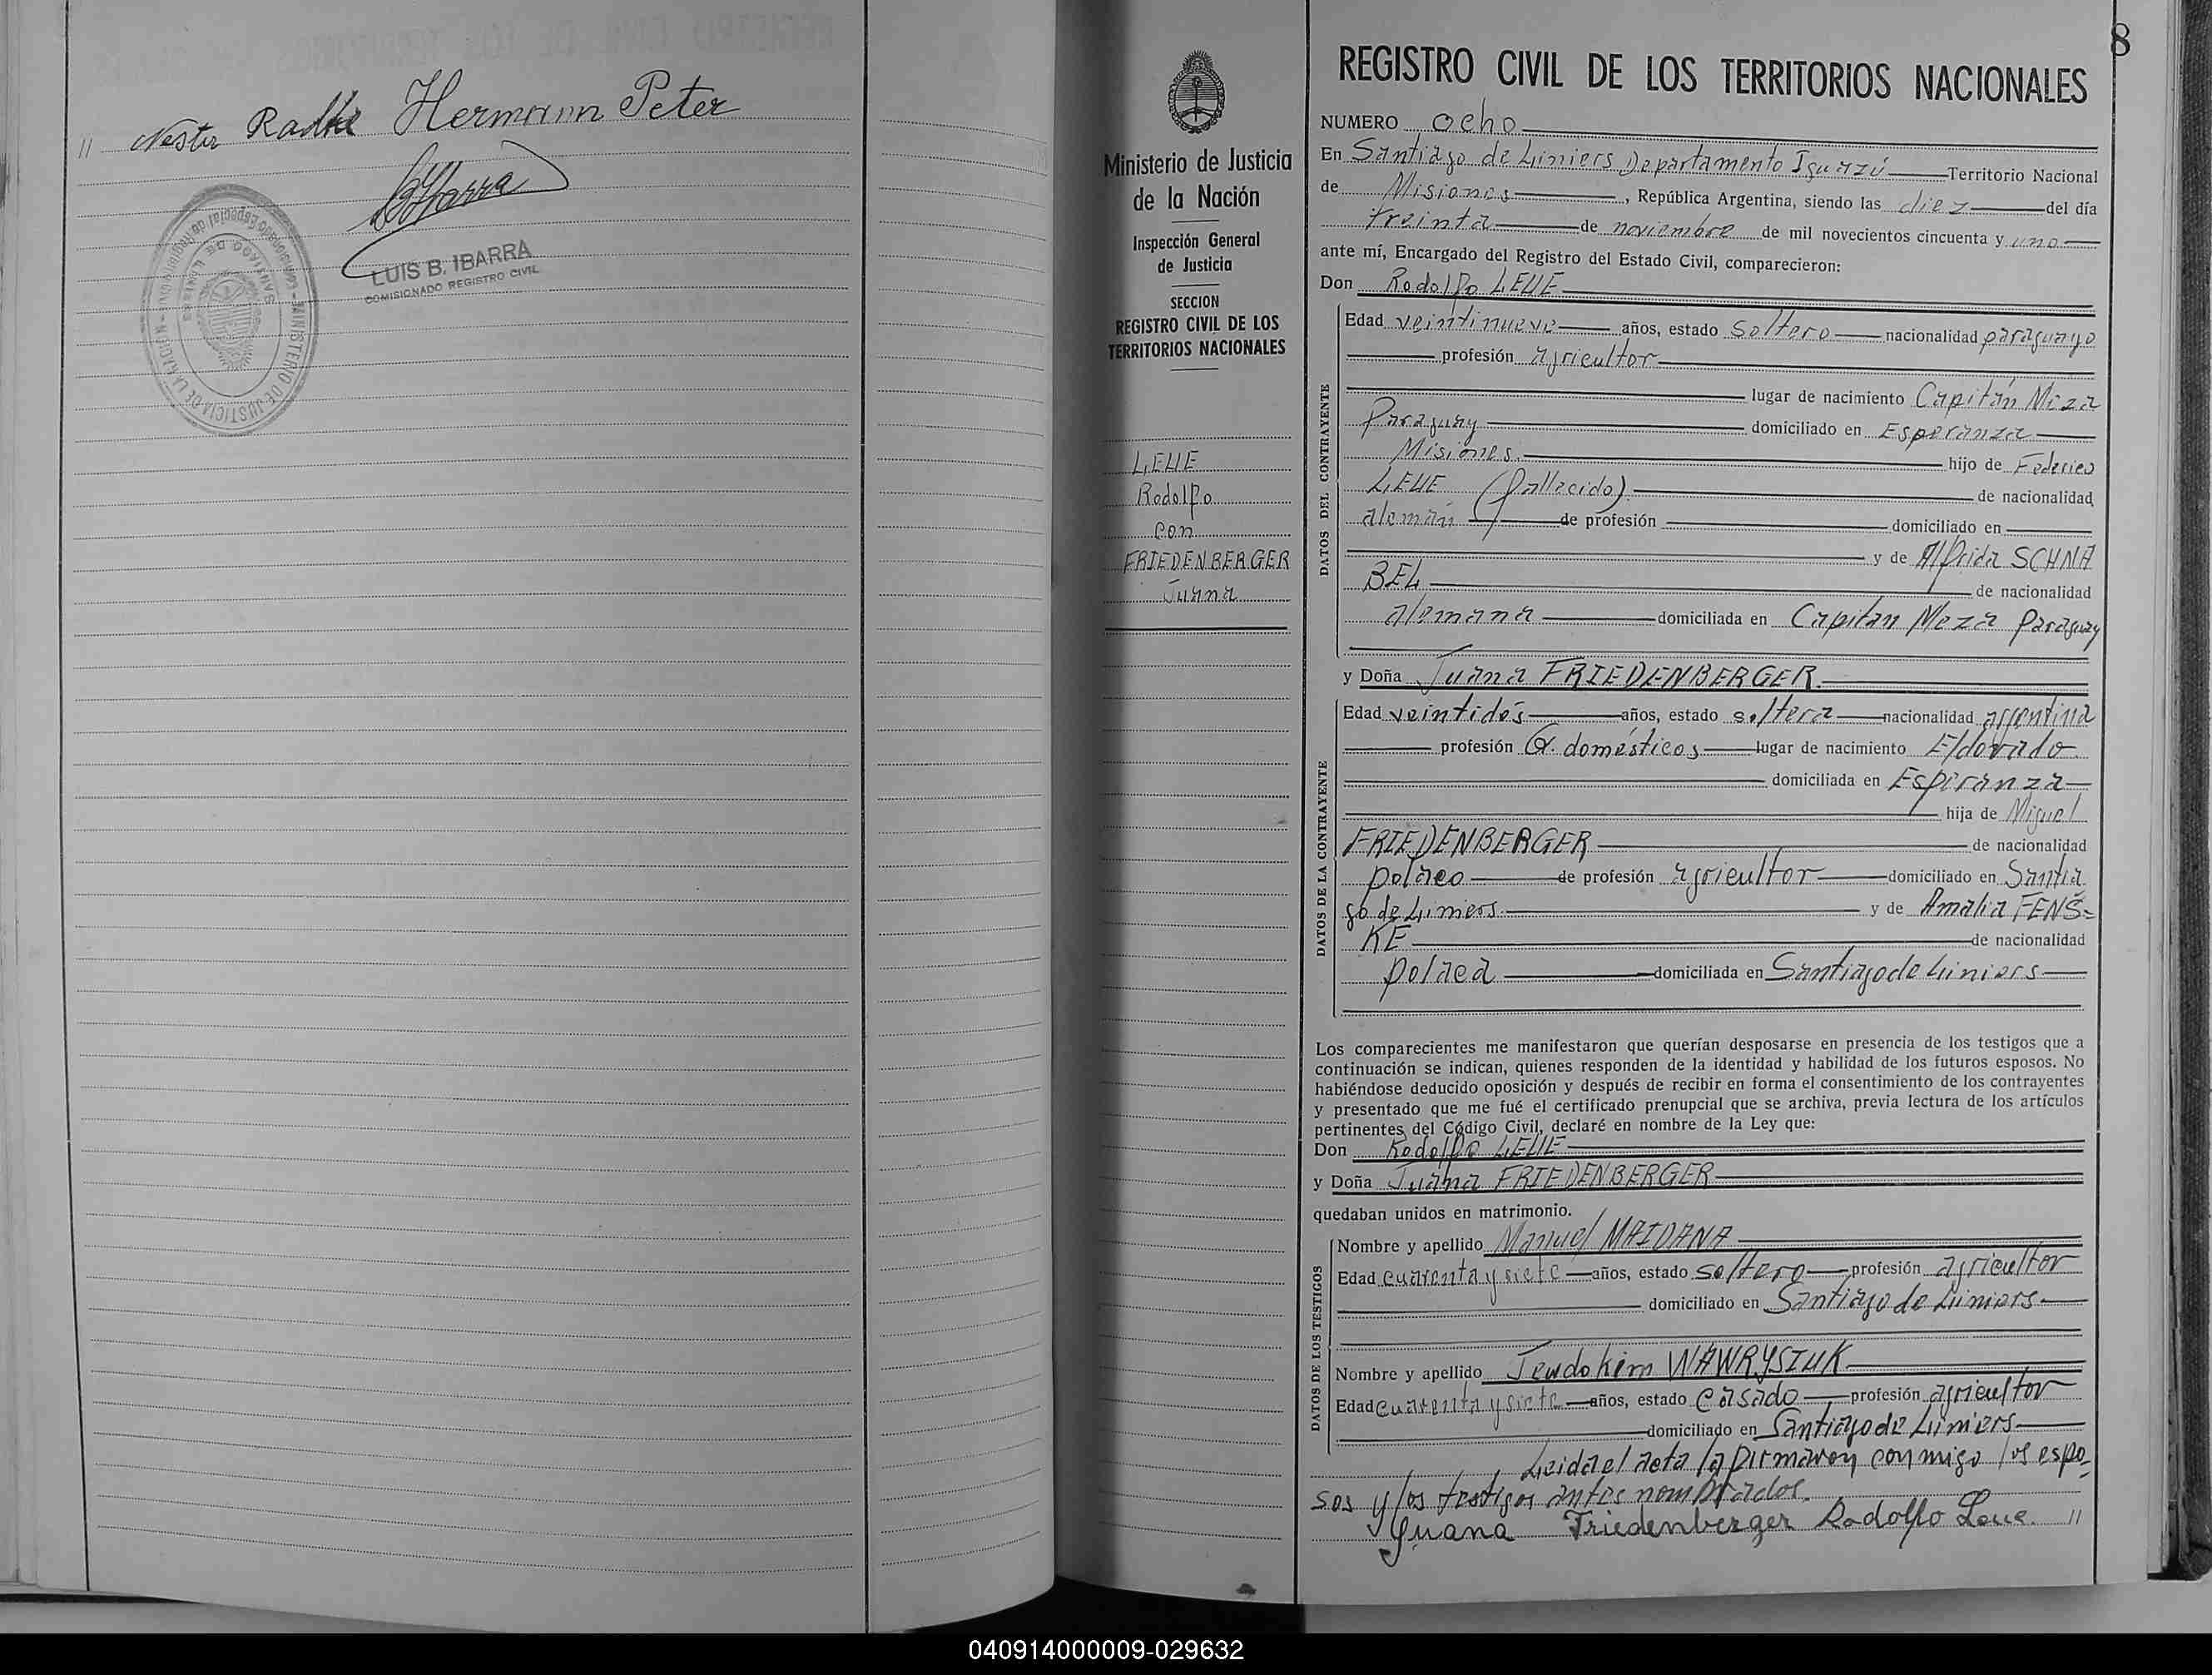 // Nestor Radke Hermann Peter
LUIS B. IBARRA
COMISIONADO REGISTRO CIVIL
MINISTERIO DE JUSTICIA DE LA NACIÓN
8
Ministerio de Justicia
de la Nación
Inspección General
de Justicia
SECCION
REGISTRO CIVIL DE LOS
TERRITORIOS NACIONALES
LEUE
Rodolfo
con
FRIEDENBERGER
Juana
REGISTRO CIVIL DE LOS TERRITORIOS NACIONALES
NUMERO ocho
En Santiago de Liniers Departamento Iguazú Territorio Nacional
de Misiones, República Argentina, siendo las diez del día
treinta de noviembre de mil novecientos cincuenta y uno
ante mí, Encargado del Registro del Estado Civil, comparecieron:
Don Rodolfo LEUE
DATOS DEL CONTRAYENTE
Edad veintinueve años, estado soltero nacionalidad paraguayo
profesión agricultor
lugar de nacimiento Capitán Meza
Paraguay domiciliado en Esperanza
Misiones. hijo de Federico
LEUE (fallecido) de nacionalidad
alemán de profesión domiciliado en
y de Alfrida SCHNA
BEL de nacionalidad
alemana domiciliada en Capitan Meza Paraguay
y Doña Juana FRIEDENBERGER.
DATOS DE LA CONTRAYENTE
Edad veintidós años, estado soltera nacionalidad argentina
profesión Q. domésticos lugar de nacimiento Eldorado
domiciliada en Esperanza
hija de Miguel
FRIEDENBERGER de nacionalidad
polaco de profesión agricultor domiciliado en Santia
go de Liniers. y de Amalia FENS=
KE de nacionalidad
polaca domiciliada en Santiago de Liniers
Los comparecientes me manifestaron que querían desposarse en presencia de los testigos que a
continuación se indican, quienes responden de la identidad y habilidad de los futuros esposos. No
habiéndose deducido oposición y después de recibir en forma el consentimiento de los contrayentes
y presentado que me fué el certificado prenupcial que se archiva, previa lectura de los artículos
pertinentes del Código Civil, declaré en nombre de la Ley que:
Don Rodolfo LEUE
y Doña Juana FRIEDENBERGER
quedaban unidos en matrimonio.
DATOS DE LOS TESTIGOS
Nombre y apellido Manuel MAIDANA
Edad cuarenta y siete años, estado soltero profesión agricultor
domiciliado en Santiago de Liniers
Nombre y apellido Jewdokim WAWRYSIUK
Edad cuarenta y siete años, estado casado profesión agricultor
domiciliado en Santiago de Liniers
Leida el acta la firmaron conmigo los espo_
sos y los testigos antes nombrados.
Juana Friedenberger Rodolfo Leue. //
040914000009-029632